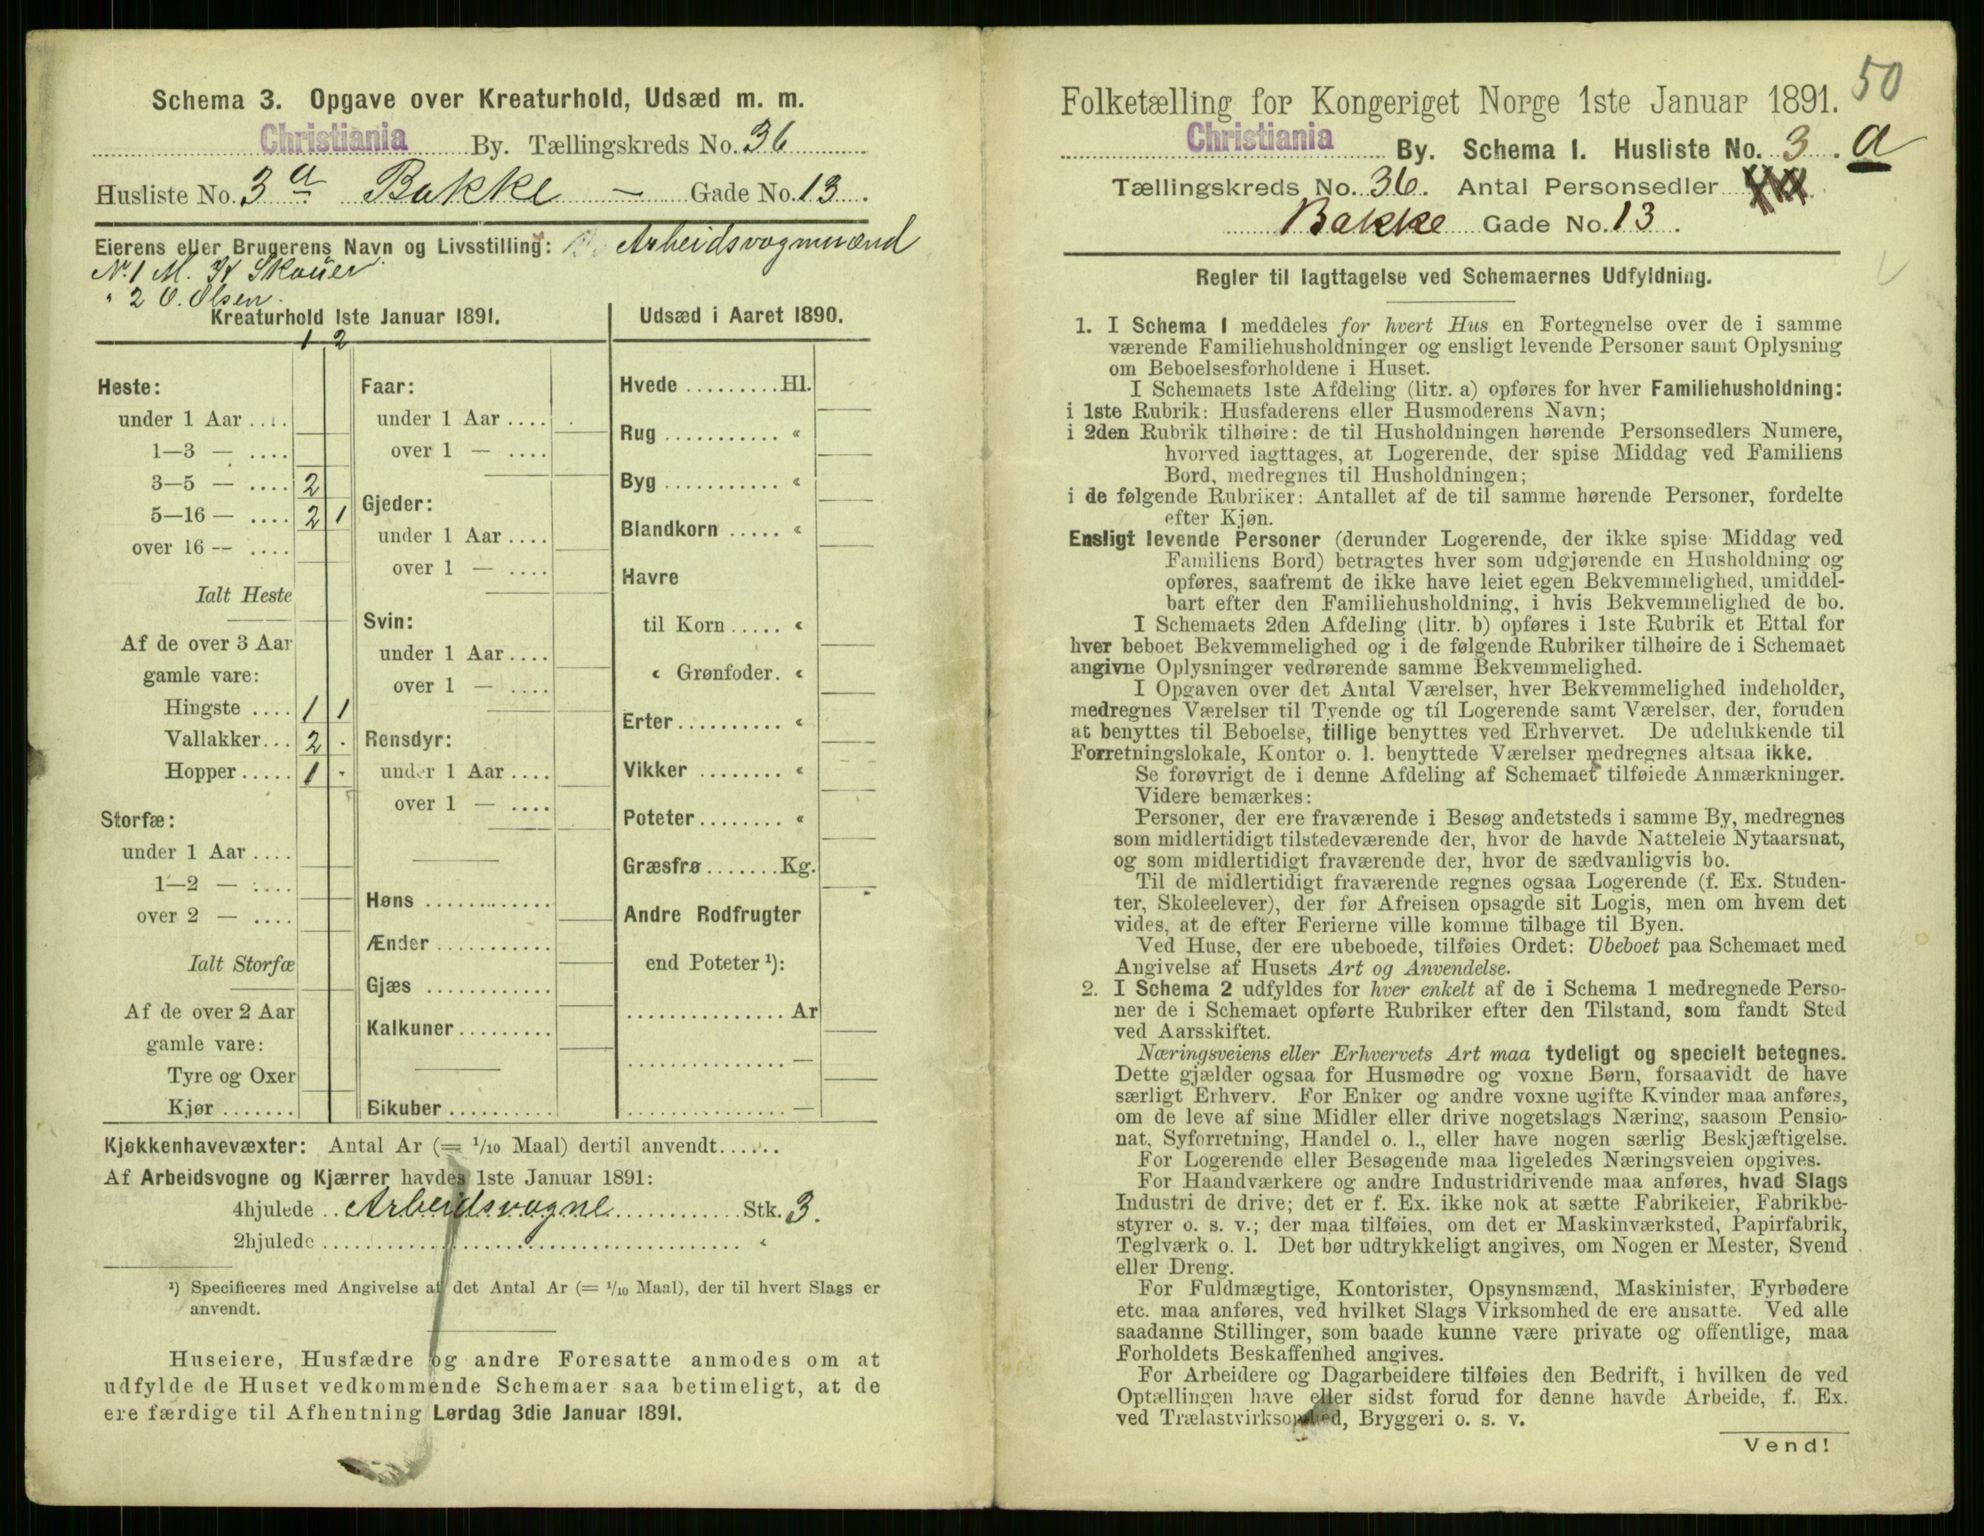 Schema 3. Opgave over Kreaturhold, Udsæd m. m.
Christiania By. Tællingskreds No. 36
Husliste No. 3 a Bakke — Gade No. 13.
Eierens eller Brugerens Navn og Livsstilling: Arbeidsvognmænd
No. 1 M. K Skouer
" 2 O. Olsen.
Kreaturhold 1ste Januar 1891.
1 2
Heste:
under 1 Aar ....
1—3 — ....
3—5 — .... 2
5—16 — .... 2 1
over 16 — ....
Ialt Heste
Af de over 3 Aar
gamle vare:
Hingste .... 1 1
Vallakker... 2 .
Hopper..... 1 .
Storfæ:
under 1 Aar ....
1—2 — ....
over 2 — ....
Ialt Storfæ
Af de over 2 Aar
gamle vare:
Tyre og Oxer
Kjør .......
Faar:
under 1 Aar ....
over 1 — ....
Gjeder:
under 1 Aar ....
over 1 — ....
Svin:
under 1 Aar ....
over 1 — ....
Rensdyr:
under 1 Aar ....
over 1 — ....
Høns ............
Ænder ...........
Gjæs ............
Kalkuner .........
Bikuber ..........
Udsæd i Aaret 1890.
Hvede ......... Hl.
Rug ........... "
Byg ........... "
Blandkorn ..... "
Havre
til Korn ..... "
" Grønfoder. "
Erter .......... "
Vikker ......... "
Poteter ........ "
Græsfrø ....... Kg.
Andre Rodfrugter
end Poteter ¹):
............... Ar
............... —
............... —
Kjøkkenhavevæxter: Antal Ar (= 1/10 Maal) dertil anvendt......
Af Arbeidsvogne og Kjærrer havdes 1ste Januar 1891:
4hjulede .. Arbeidsvogne ............ Stk. 3.
2hjulede ........................................ "
¹) Specificeres med Angivelse af det Antal Ar (= 1/10 Maal), der til hvert Slags er
anvendt.
Huseiere, Husfædre og andre Foresatte anmodes om at
udfylde de Huset vedkommende Schemaer saa betimeligt, at de
ere færdige til Afhentning Lørdag 3die Januar 1891.
50
Folketælling for Kongeriget Norge 1ste Januar 1891.
Christiania By. Schema I. Husliste No. 3. a
Tællingskreds No. 36. Antal Personsedler
Bakke Gade No. 13.
Regler til Iagttagelse ved Schemaernes Udfyldning.
1. I Schema 1 meddeles for hvert Hus en Fortegnelse over de i samme
værende Familiehusholdninger og ensligt levende Personer samt Oplysning
om Beboelsesforholdene i Huset.
I Schemaets 1ste Afdeling (litr. a) opføres for hver Familiehusholdning:
i 1ste Rubrik: Husfaderens eller Husmoderens Navn;
i 2den Rubrik tilhøire: de til Husholdningen hørende Personsedlers Numere,
hvorved iagttages, at Logerende, der spise Middag ved Familiens
Bord, medregnes til Husholdningen;
i de følgende Rubriker: Antallet af de til samme hørende Personer, fordelte
efter Kjøn.
Ensligt levende Personer (derunder Logerende, der ikke spise Middag ved
Familiens Bord) betragtes hver som udgjørende en Husholdning og
opføres, saafremt de ikke have leiet egen Bekvemmelighed, umiddel-
bart efter den Familiehusholdning, i hvis Bekvemmelighed de bo.
I Schemaets 2den Afdeling (litr. b) opføres i 1ste Rubrik et Ettal for
hver beboet Bekvemmelighed og i de følgende Rubriker tilhøire de i Schemaet
angivne Oplysninger vedrørende samme Bekvemmelighed.
I Opgaven over det Antal Værelser, hver Bekvemmelighed indeholder,
medregnes Værelser til Tyende og til Logerende samt Værelser, der, foruden
at benyttes til Beboelse, tillige benyttes ved Erhvervet. De udelukkende til
Forretningslokale, Kontor o. l. benyttede Værelser medregnes altsaa ikke.
Se forøvrigt de i denne Afdeling af Schemaet tilføiede Anmærkninger.
Videre bemærkes:
Personer, der ere fraværende i Besøg andetsteds i samme By, medregnes
som midlertidigt tilstedeværende der, hvor de havde Natteleie Nytaarsnat,
og som midlertidigt fraværende der, hvor de sædvanligvis bo.
Til de midlertidigt fraværende regnes ogsaa Logerende (f. Ex. Studen-
ter, Skoleelever), der før Afreisen opsagde sit Logis, men om hvem det
vides, at de efter Ferierne ville komme tilbage til Byen.
Ved Huse, der ere ubeboede, tilføies Ordet: Ubeboet paa Schemaet med
Angivelse af Husets Art og Anvendelse.
2. I Schema 2 udfyldes for hver enkelt af de i Schema 1 medregnede Perso-
ner de i Schemaet opførte Rubriker efter den Tilstand, som fandt Sted
ved Aarsskiftet.
Næringsveiens eller Erhvervets Art maa tydeligt og specielt betegnes.
Dette gjælder ogsaa for Husmødre og voxne Børn, forsaavidt de have
særligt Erhverv. For Enker og andre voxne ugifte Kvinder maa anføres,
om de leve af sine Midler eller drive nogetslags Næring, saasom Pensio-
nat, Syforretning, Handel o. l., eller have nogen særlig Beskjæftigelse.
For Logerende eller Besøgende maa ligeledes Næringsveien opgives.
For Haandværkere og andre Industridrivende maa anføres, hvad Slags
Industri de drive; det er f. Ex. ikke nok at sætte Fabrikeier, Fabrikbe-
styrer o. s. v.; der maa tilføies, om det er Maskinværksted, Papirfabrik,
Teglværk o. l. Det bør udtrykkeligt angives, om Nogen er Mester, Svend
eller Dreng.
For Fuldmægtige, Kontorister, Opsynsmænd, Maskinister, Fyrbødere
etc. maa anføres, ved hvilket Slags Virksomhed de ere ansatte. Ved alle
saadanne Stillinger, som baade kunne være private og offentlige, maa
Forholdets Beskaffenhed angives.
For Arbeidere og Dagarbeidere tilføies den Bedrift, i hvilken de ved
Optællingen have eller sidst forud for denne havde Arbeide, f. Ex.
ved Trælastvirksomhed, Bryggeri o. s. v.
Vend!